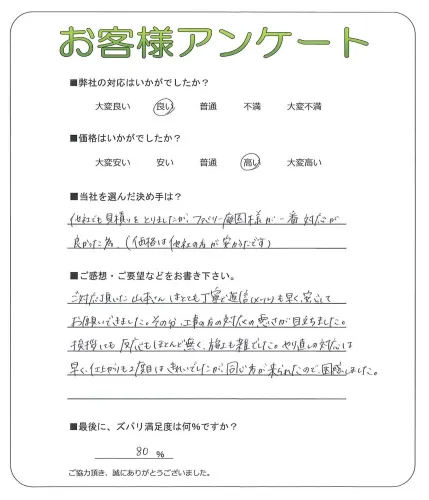 お客様アンケート
■弊社の対応はいかがでしたか？
大変良い 良い 普通 不満 大変不満
■価格はいかがでしたか？
大変安い 安い 普通 高い 大変高い
■当社を選んだ決め手は？
他社でも見積りをとりましたが、ファミリー庭園様が一番対応が
良かった為、(価格は他社の方が安かったです)
■ご感想・ご要望などをお書き下さい。
ご対応頂いた山本さんはとても丁寧で返信(メール)も早く、安心して
お願いできました。その分、工事の方の対応の悪さが目立ちました。
挨拶にも反応もほとんど無く、施工も雑でした。やり直しの対応は
早く、仕上がりも2度目はきれいでしたが、同じ方が来られたので、困惑しました。
■最後に、ズバリ満足度は何%ですか？
80 %
ご協力頂き、誠にありがとうございました。